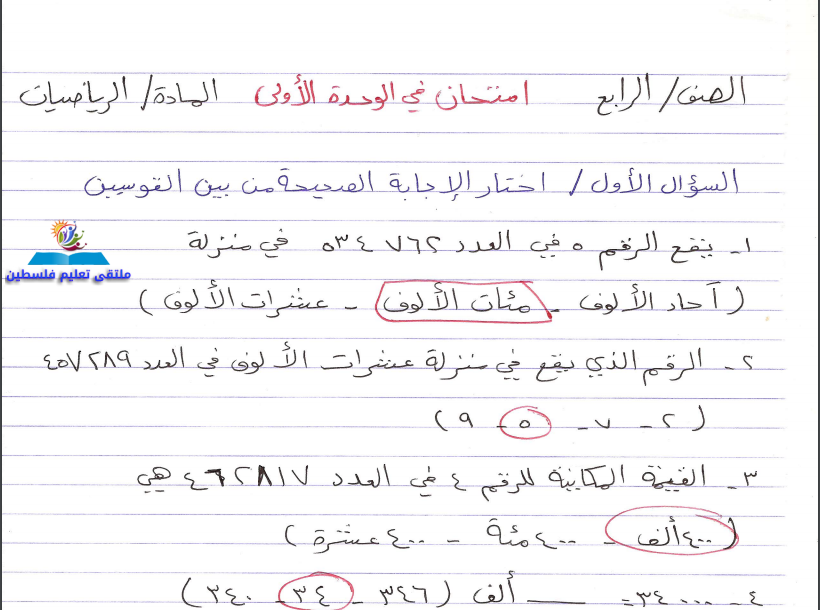 الصف/ الرابع امتحان في الوحدة الأولى المادة/ الرياضيات
السؤال الأول/ اختار الإجابة الصحيحة من بين القوسين
١- يقع الرقم ٥ في العدد ٥٣٤٧٦٢ في منزلة
( آحاد الألوف - مئات الألوف - عشرات الألوف )
ملتقى تعليم فلسطين
٢- الرقم الذي يقع في منزلة عشرات الألوف في العدد ٤٥٧٢٨٩
( ٢ - ٧ - ٥ - ٩ )
٣- القيمة المكانية للرقم ٤ في العدد ٤٦٢٨١٧ هي
( ٤٠٠ ألف - ٤٠٠ مئة - ٤٠٠ عشرة )
٤- ٣٤٠٠٠٠ = ___ ألف ( ٣٤٦ - ٣٤ - ٣٤٠ )